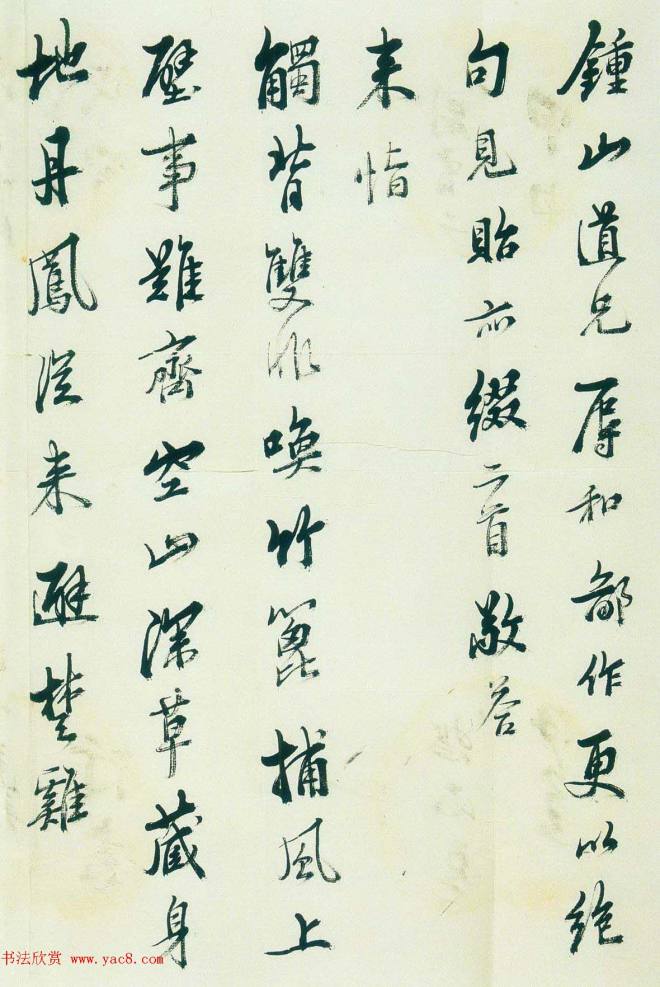 鍾山道兄辱和鄙作更以絶
句見貽亦綴二首敬荅
来惜
觸背雙非喚竹篦捕風上
壁事難齊空山深草藏身
地丹鳳從来避楚雞
书法欣赏 www.yac8.com